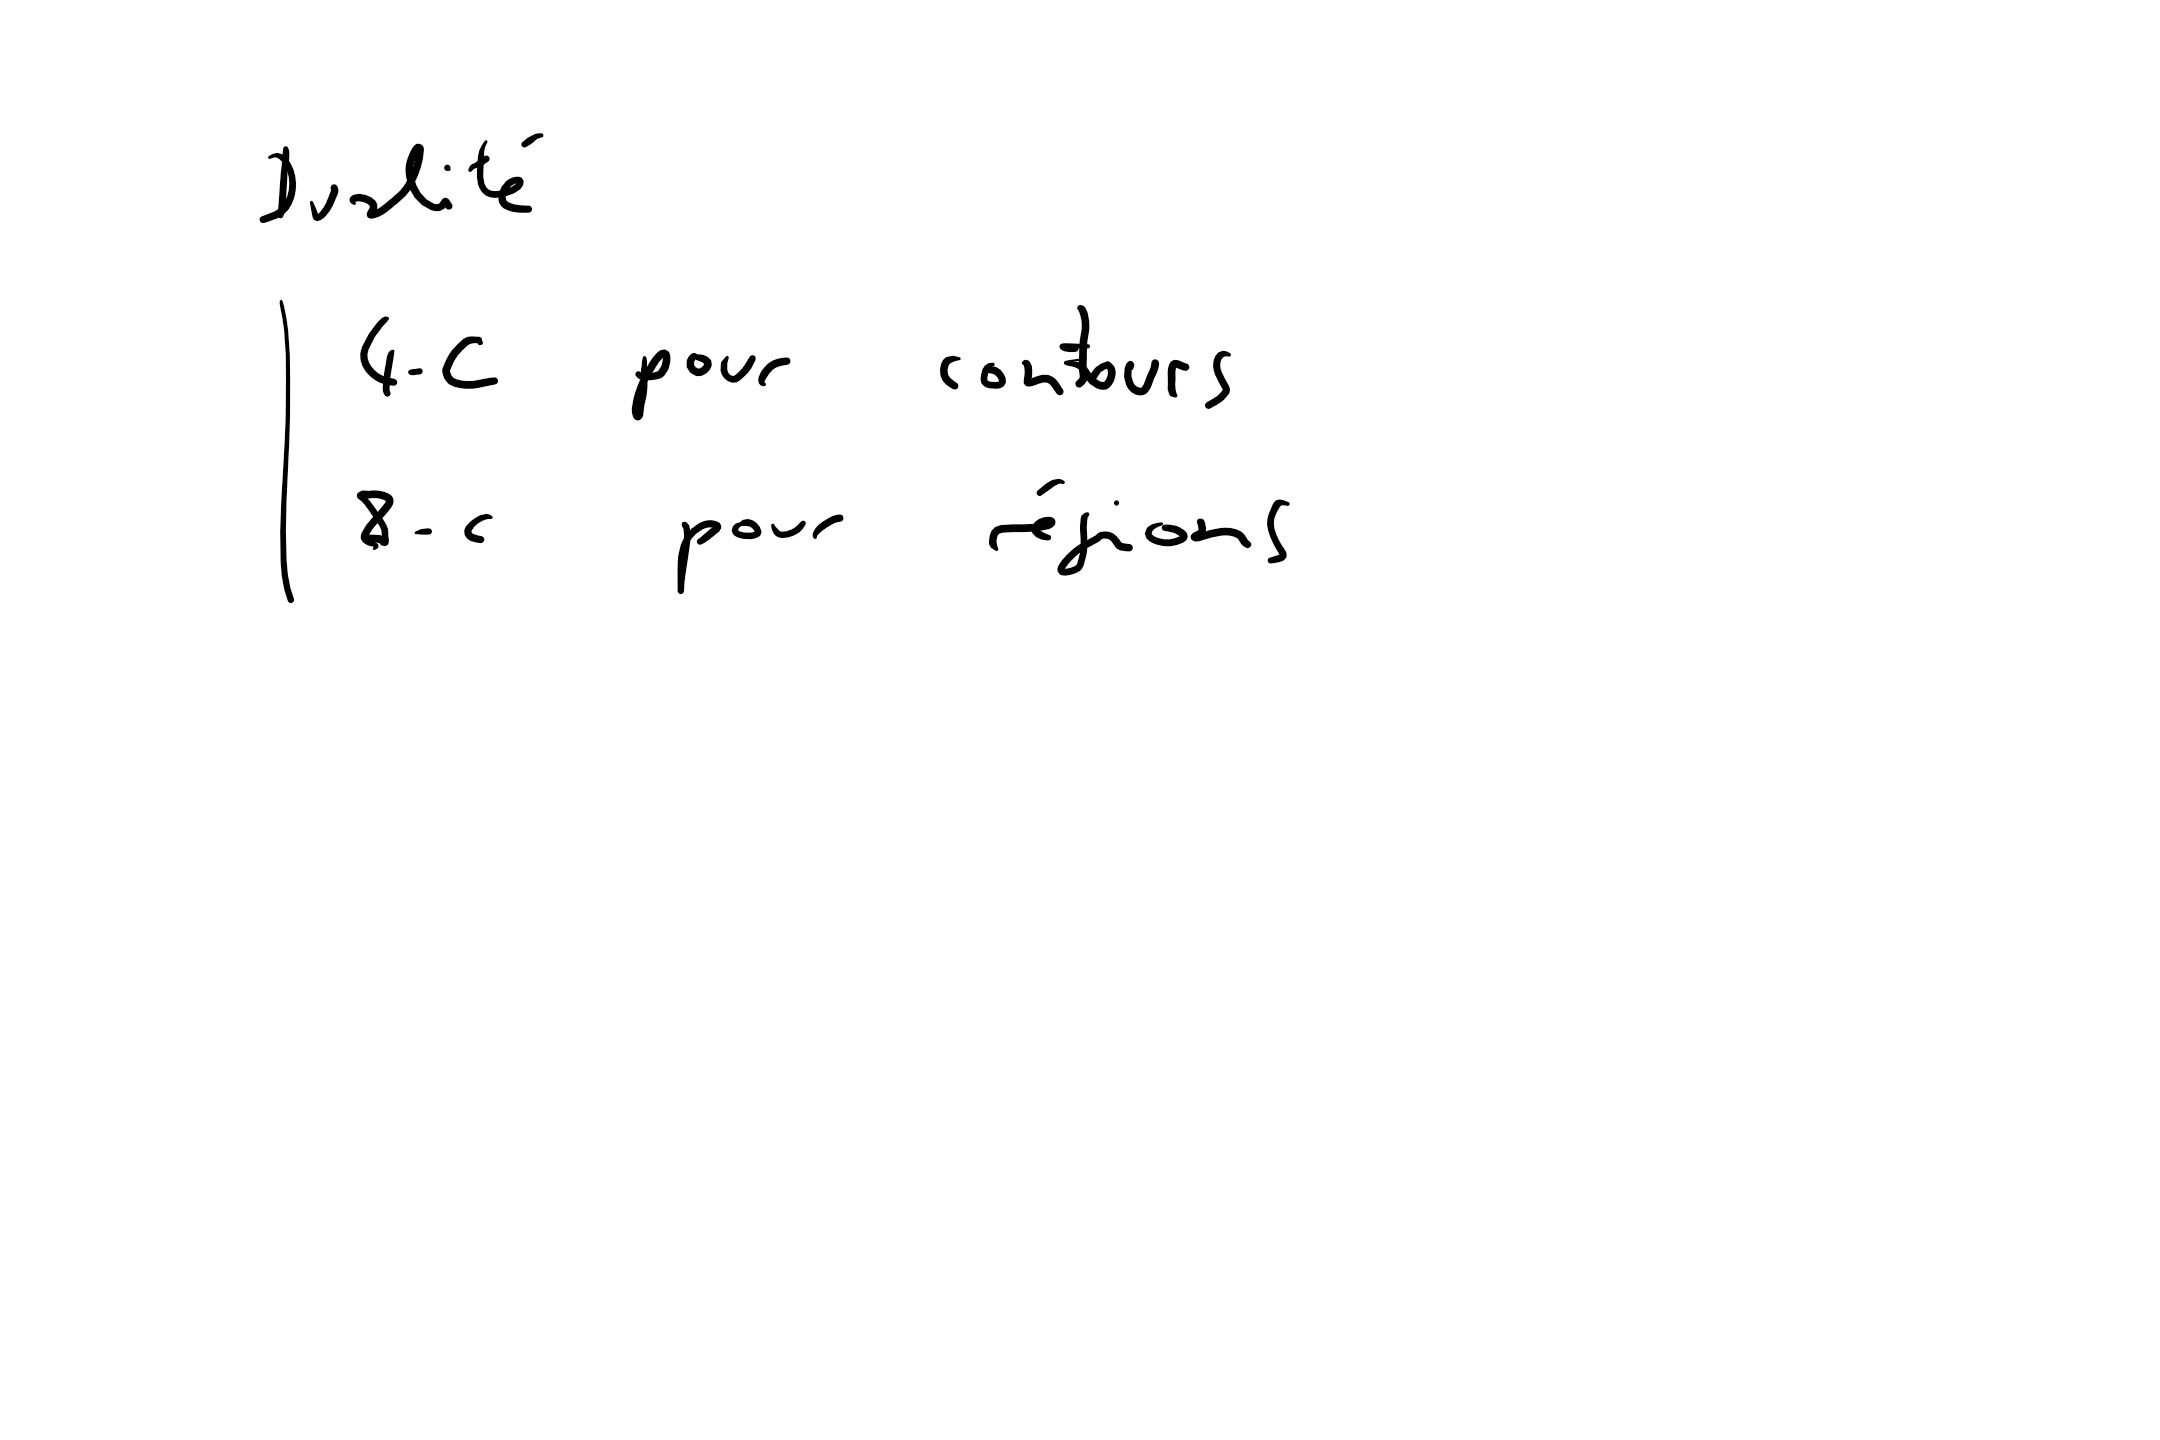 Dualité
4-C pour contours
8-c pour régions